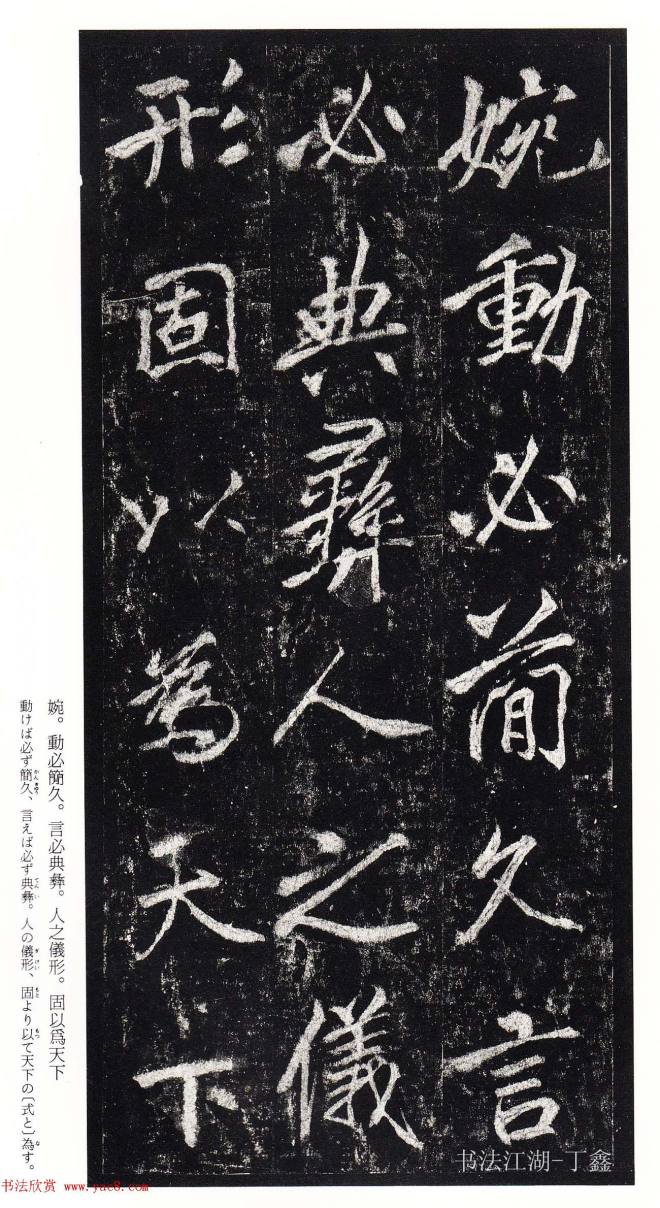 婉動必簡久言
必典彝人之儀
形固以為天下
婉。動必簡久。言必典彝。人之儀形。固以爲天下
動けば必ず簡久、言えば必ず典彝。人の儀形、固より以て天下の〔式と〕為す。
书法江湖-丁鑫
书法欣赏 www.yac8.com